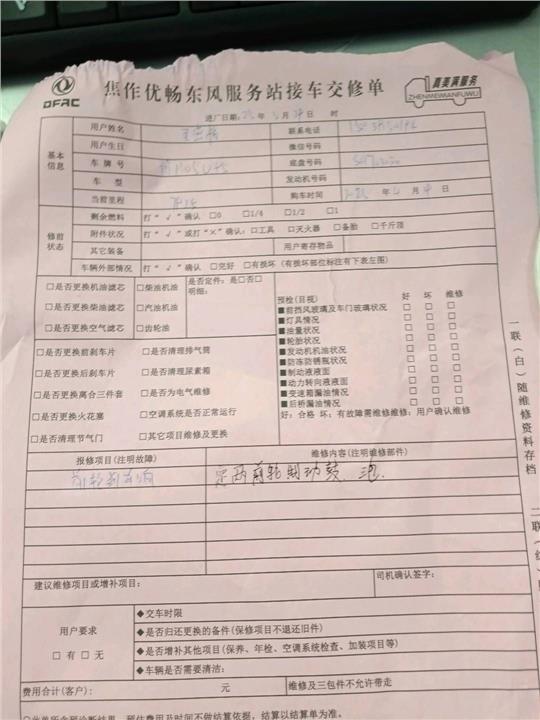 DFAC
焦作优畅东风服务站接车交修单
真美满服务
ZHENMEIMANFUWU
进厂日期: 年 月 日 时
基本信息
用户姓名
联系电话
用户生日
微信号码
车牌号
底盘号码
车型
发动机号码
当前里程
购车时间 年 月 日
修前状态
剩余燃料 打“√”确认 □0 □1/4 □1/2 □1
附件状况 打“√”或打“×”确认:□工具 □灭火器 □备胎 □千斤顶
其它装备
用户寄存物品
车辆外部情况 打“√”确认 □完好 □有损坏(有损坏部位标注有下表左图)
□是否更换机油滤芯 □柴油机油
□是否更换柴油滤芯 □汽油机油
□是否更换空气滤芯 □齿轮油
是否定件:□是□否□
明细:
□是否更换前刹车片 □是否清理排气筒
□是否更换后刹车片 □是否清理尿素箱
□是否更换离合三件套 □是否为电气维修
□是否更换火花塞 □空调系统是否正常运行
□是否清理节气门 □其它项目维修及更换
预检(目视) 好 坏 维修
■前挡风玻璃及车门玻璃状况 □ □ □
■灯具情况 □ □ □
■油量状况 □ □ □
■轮胎状况 □ □ □
■发动机机油状况 □ □ □
■防冻防锈瓶状况 □ □ □
■制动液液面 □ □ □
■动力转向液液面 □ □ □
■变速箱漏油情况 □ □ □
■后桥漏油情况 □ □ □
好:合格 坏:有故障需维修维修:用户确认维修
报修项目(注明故障)
维修内容(注明维修部件)
两前轮制动鼓
建议维修项目或增补项目:
司机确认签字:
用户要求
□ 有 □ 无
◆交车时限
◆是否归还更换的备件(保修项目不退还旧件)
◆是否增补其他项目(保养、年检、空调系统检查、加装项目等)
◆车辆是否需要清洁:
费用合计(客户): 元
维修及三包件不允许带走
预估费用及时间不做结算依据:结算以结算单为准。
一联(白)随维修资料存档
二联(